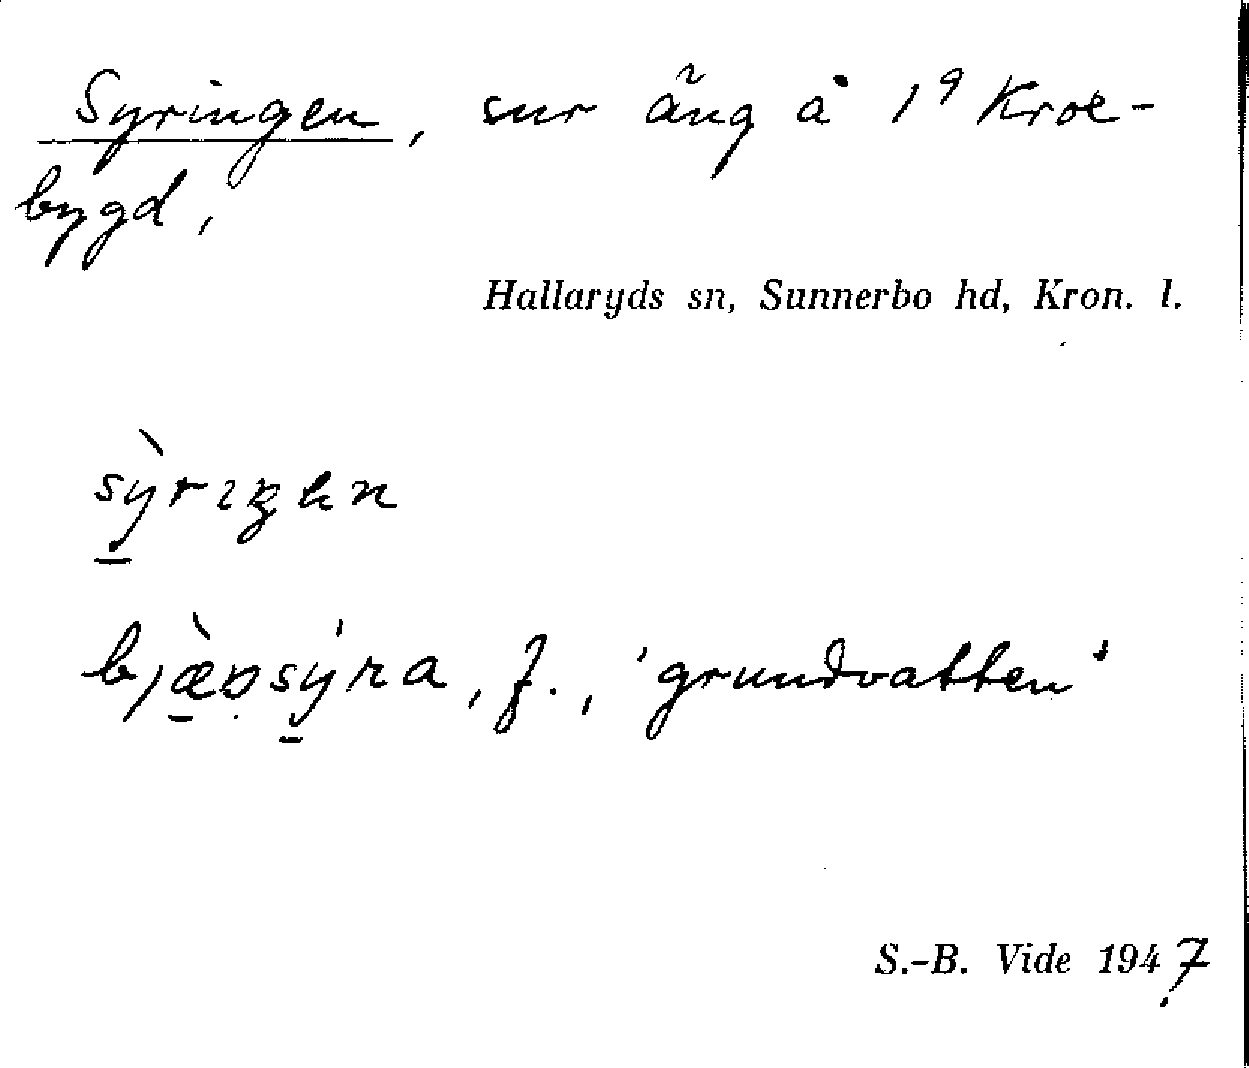 Syringen, sur äng å 1⁹ Kroe-
bygd,
Hallaryds sn, Sunnerbo hd, Kron. l.
sỳrıŋən
f., 'grundvatten'
S.-B. Vide 1947